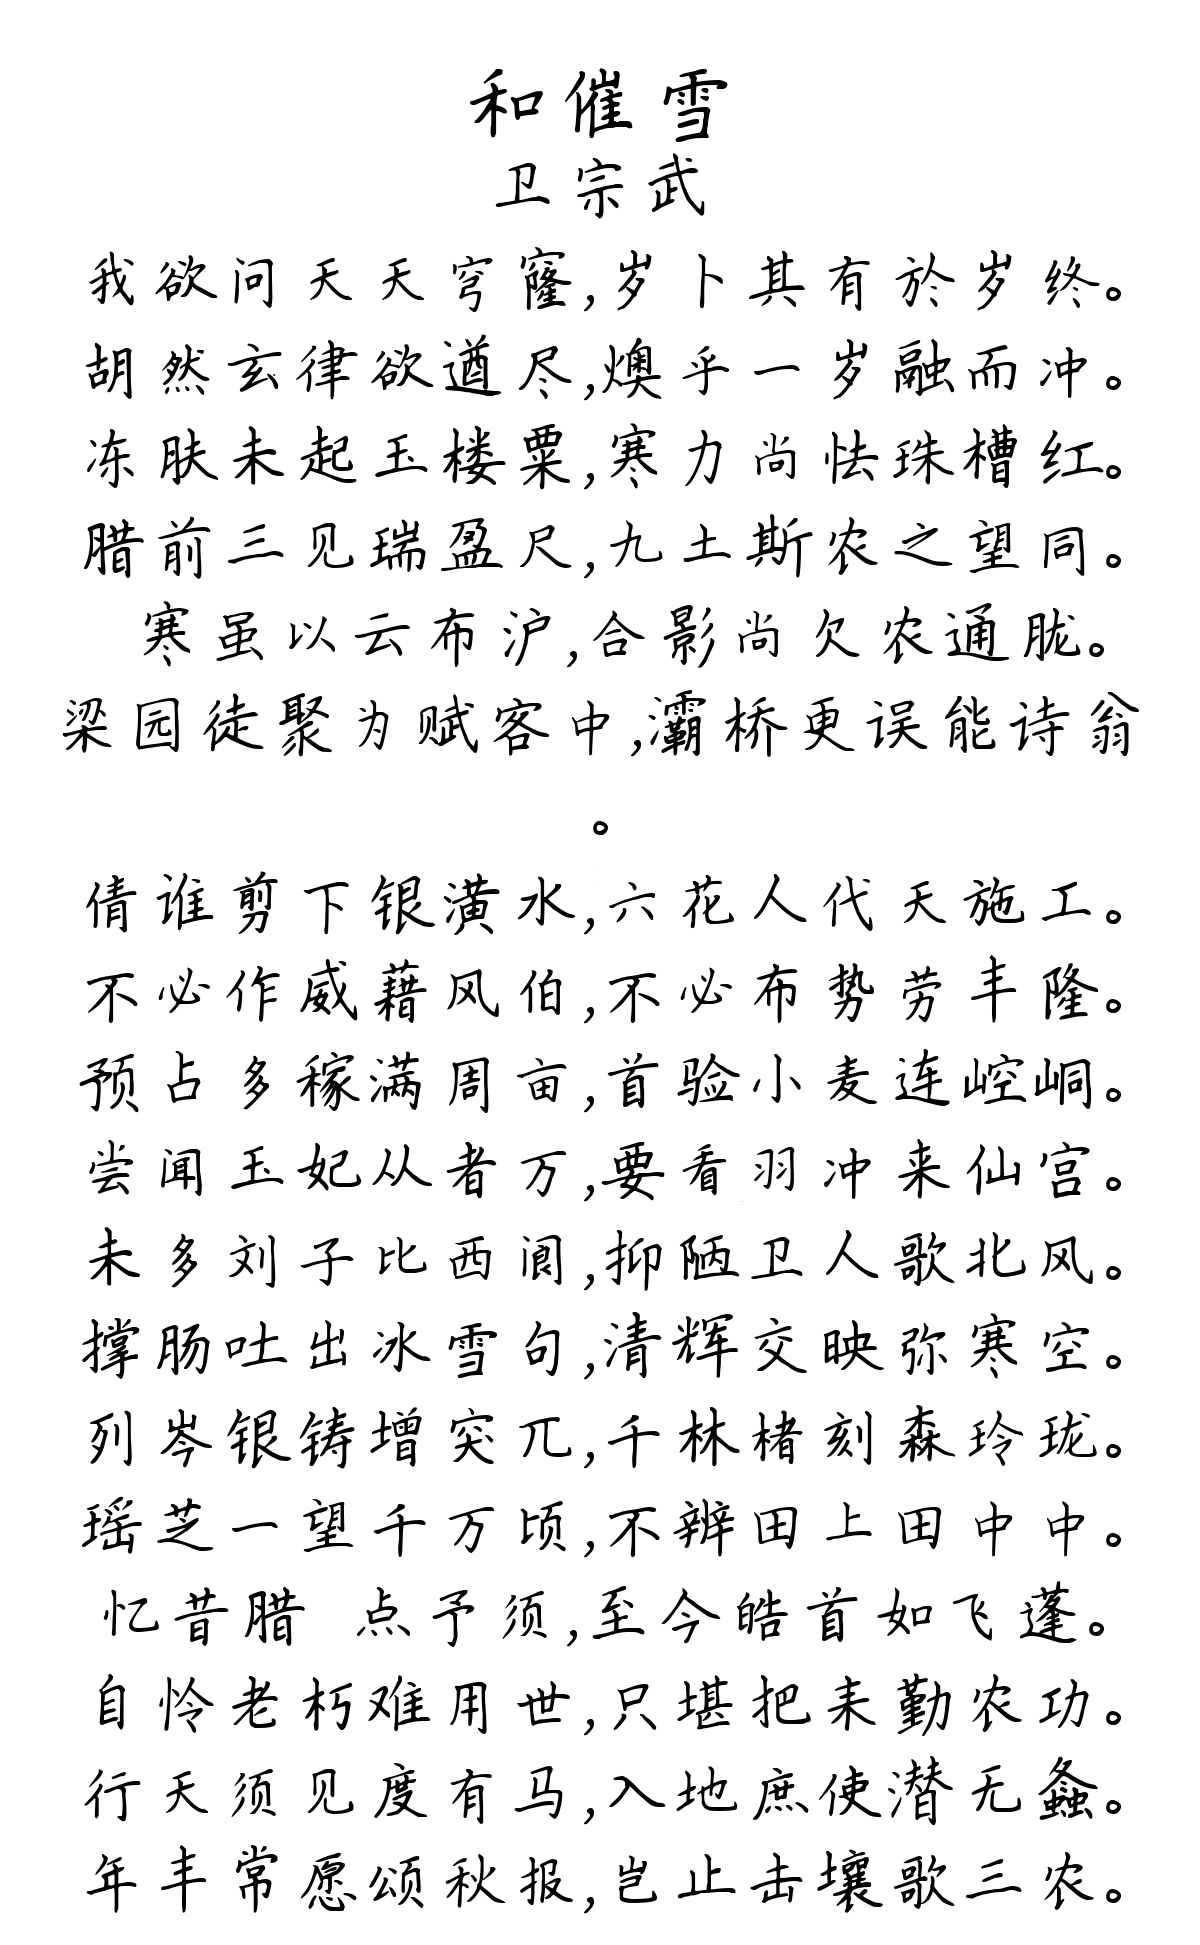 和催雪
卫宗武
我欲问天天穹窿,岁卜其有於岁终。
胡然玄律欲遒尽,燠乎一岁融而冲。
冻肤未起玉楼粟,寒力尚怯珠槽红。
腊前三见瑞盈尺,九土斯农之望同。
寒虽以云布沪,合影尚欠农通胧。
梁园徒聚为赋客中,灞桥更误能诗翁
。
倩谁剪下银潢水,六花人代天施工。
不必作威藉风伯,不必布势劳丰隆。
预占多稼满周亩,首验小麦连崆峒。
尝闻玉妃从者万,要看羽冲来仙宫。
未多刘子比西阆,抑陋卫人歌北风。
撑肠吐出冰雪句,清辉交映弥寒空。
列岑银铸增突兀,千林楮刻森玲珑。
瑶芝一望千万顷,不辨田上田中中。
忆昔腊 点予须,至今皓首如飞蓬。
自怜老朽难用世,只堪把耒勤农功。
行天须见度有马,入地庶使潜无螽。
年丰常愿颂秋报,岂止击壤歌三农。